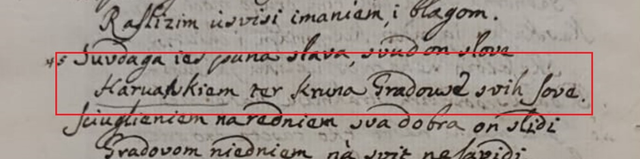 Raslizim usvisi imaniem, i blagom.
45 Suvdaga ies puna slava, svud on slove
Haruaskiem ter kruna Gradouus svih sove.
sciuglieniem naredniem sva dobra on slidi
Gradovom niedniem nà svit